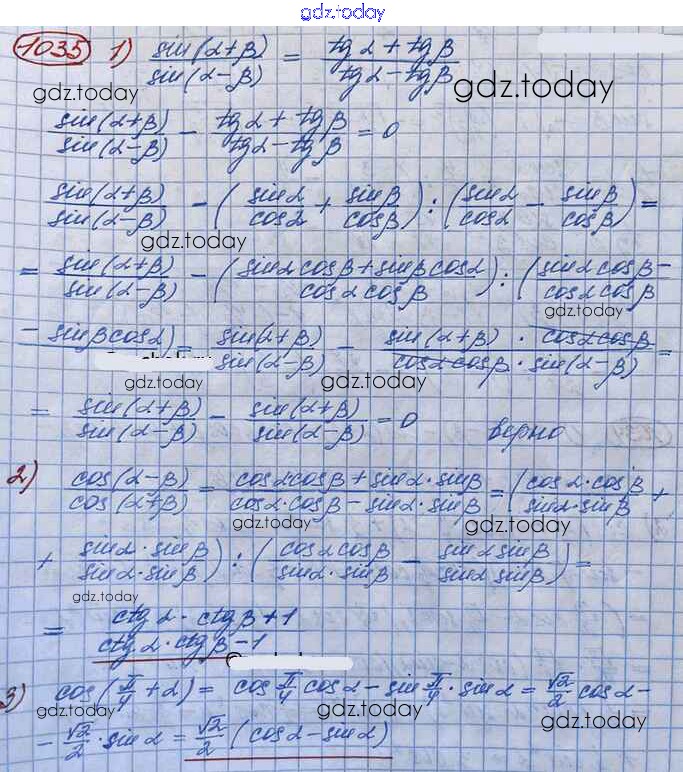 gdz.today
1035 1) sin(α+β)/sin(α-β) = (tgα+tgβ)/(tgα-tgβ)
gdz.today gdz.today
sin(α+β)/sin(α-β) - (tgα+tgβ)/(tgα-tgβ) = 0
sin(α+β)/sin(α-β) - (sinα/cosα + sinβ/cosβ) : (sinα/cosα - sinβ/cosβ) =
gdz.today
= sin(α+β)/sin(α-β) - ((sinαcosβ+sinβcosα)/(cosαcosβ)) : ((sinαcosβ-/cosαcosβ
gdz.today
- sinβcosα) = sin(α+β)/sin(α-β) - (sin(α+β)·cosαcosβ)/(cosαcosβ·sin(α-β)) =
gdz.today gdz.today
= sin(α+β)/sin(α-β) - sin(α+β)/sin(α-β) = 0 верно
2) cos(α-β)/cos(α+β) = (cosα·cosβ+sinα·sinβ)/(cosα·cosβ-sinα·sinβ) = ((cosα·cosβ)/(sinα·sinβ) +
gdz.today gdz.today
+ (sinα·sinβ)/(sinα·sinβ)) : ((cosαcosβ)/(sinα·sinβ) - (sinαsinβ)/(sinαsinβ)) =
gdz.today
= (ctgα·ctgβ+1)/(ctgα·ctgβ-1)
3) cos(π/4+α) = cos π/4 cosα - sin π/4·sinα = √2/2 cosα -
gdz.today gdz.today gdz.today
- √2/2·sinα = √2/2 (cosα-sinα)